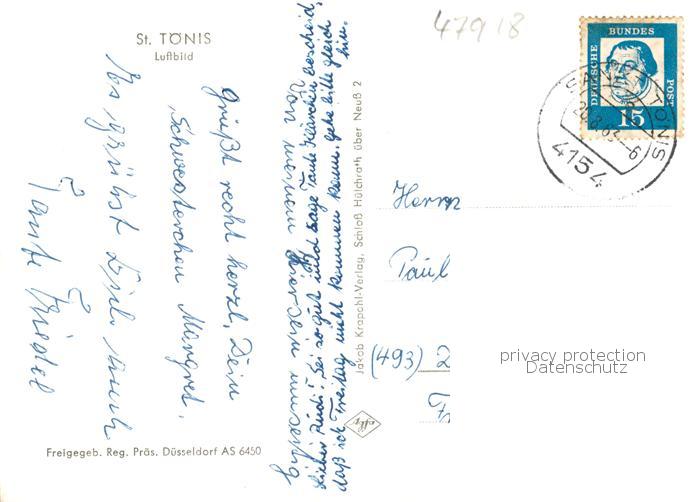 St. TÖNIS
Luftbild
47918
DEUTSCHE
BUNDES
POST
15
SANKT TÖNIS
4154
Von meinem Hier-sein
grüßt recht herzl. Dein
Schwesterchen Margret.
Es grüßt Dich auch
Tante Friedel
Lieber Rudi! Sei so gut und sage Tante Klärchen Bescheid,
daß ich Freitag nicht kommen kann, gehe bitte gleich
hin.
Jakob Krapohl-Verlag, Schloß Hülchrath über Neuß 2
Herrn
Paul
(493) 2
privacy protection
Datenschutz
Freigegeb. Reg. Präs. Düsseldorf AS 6450